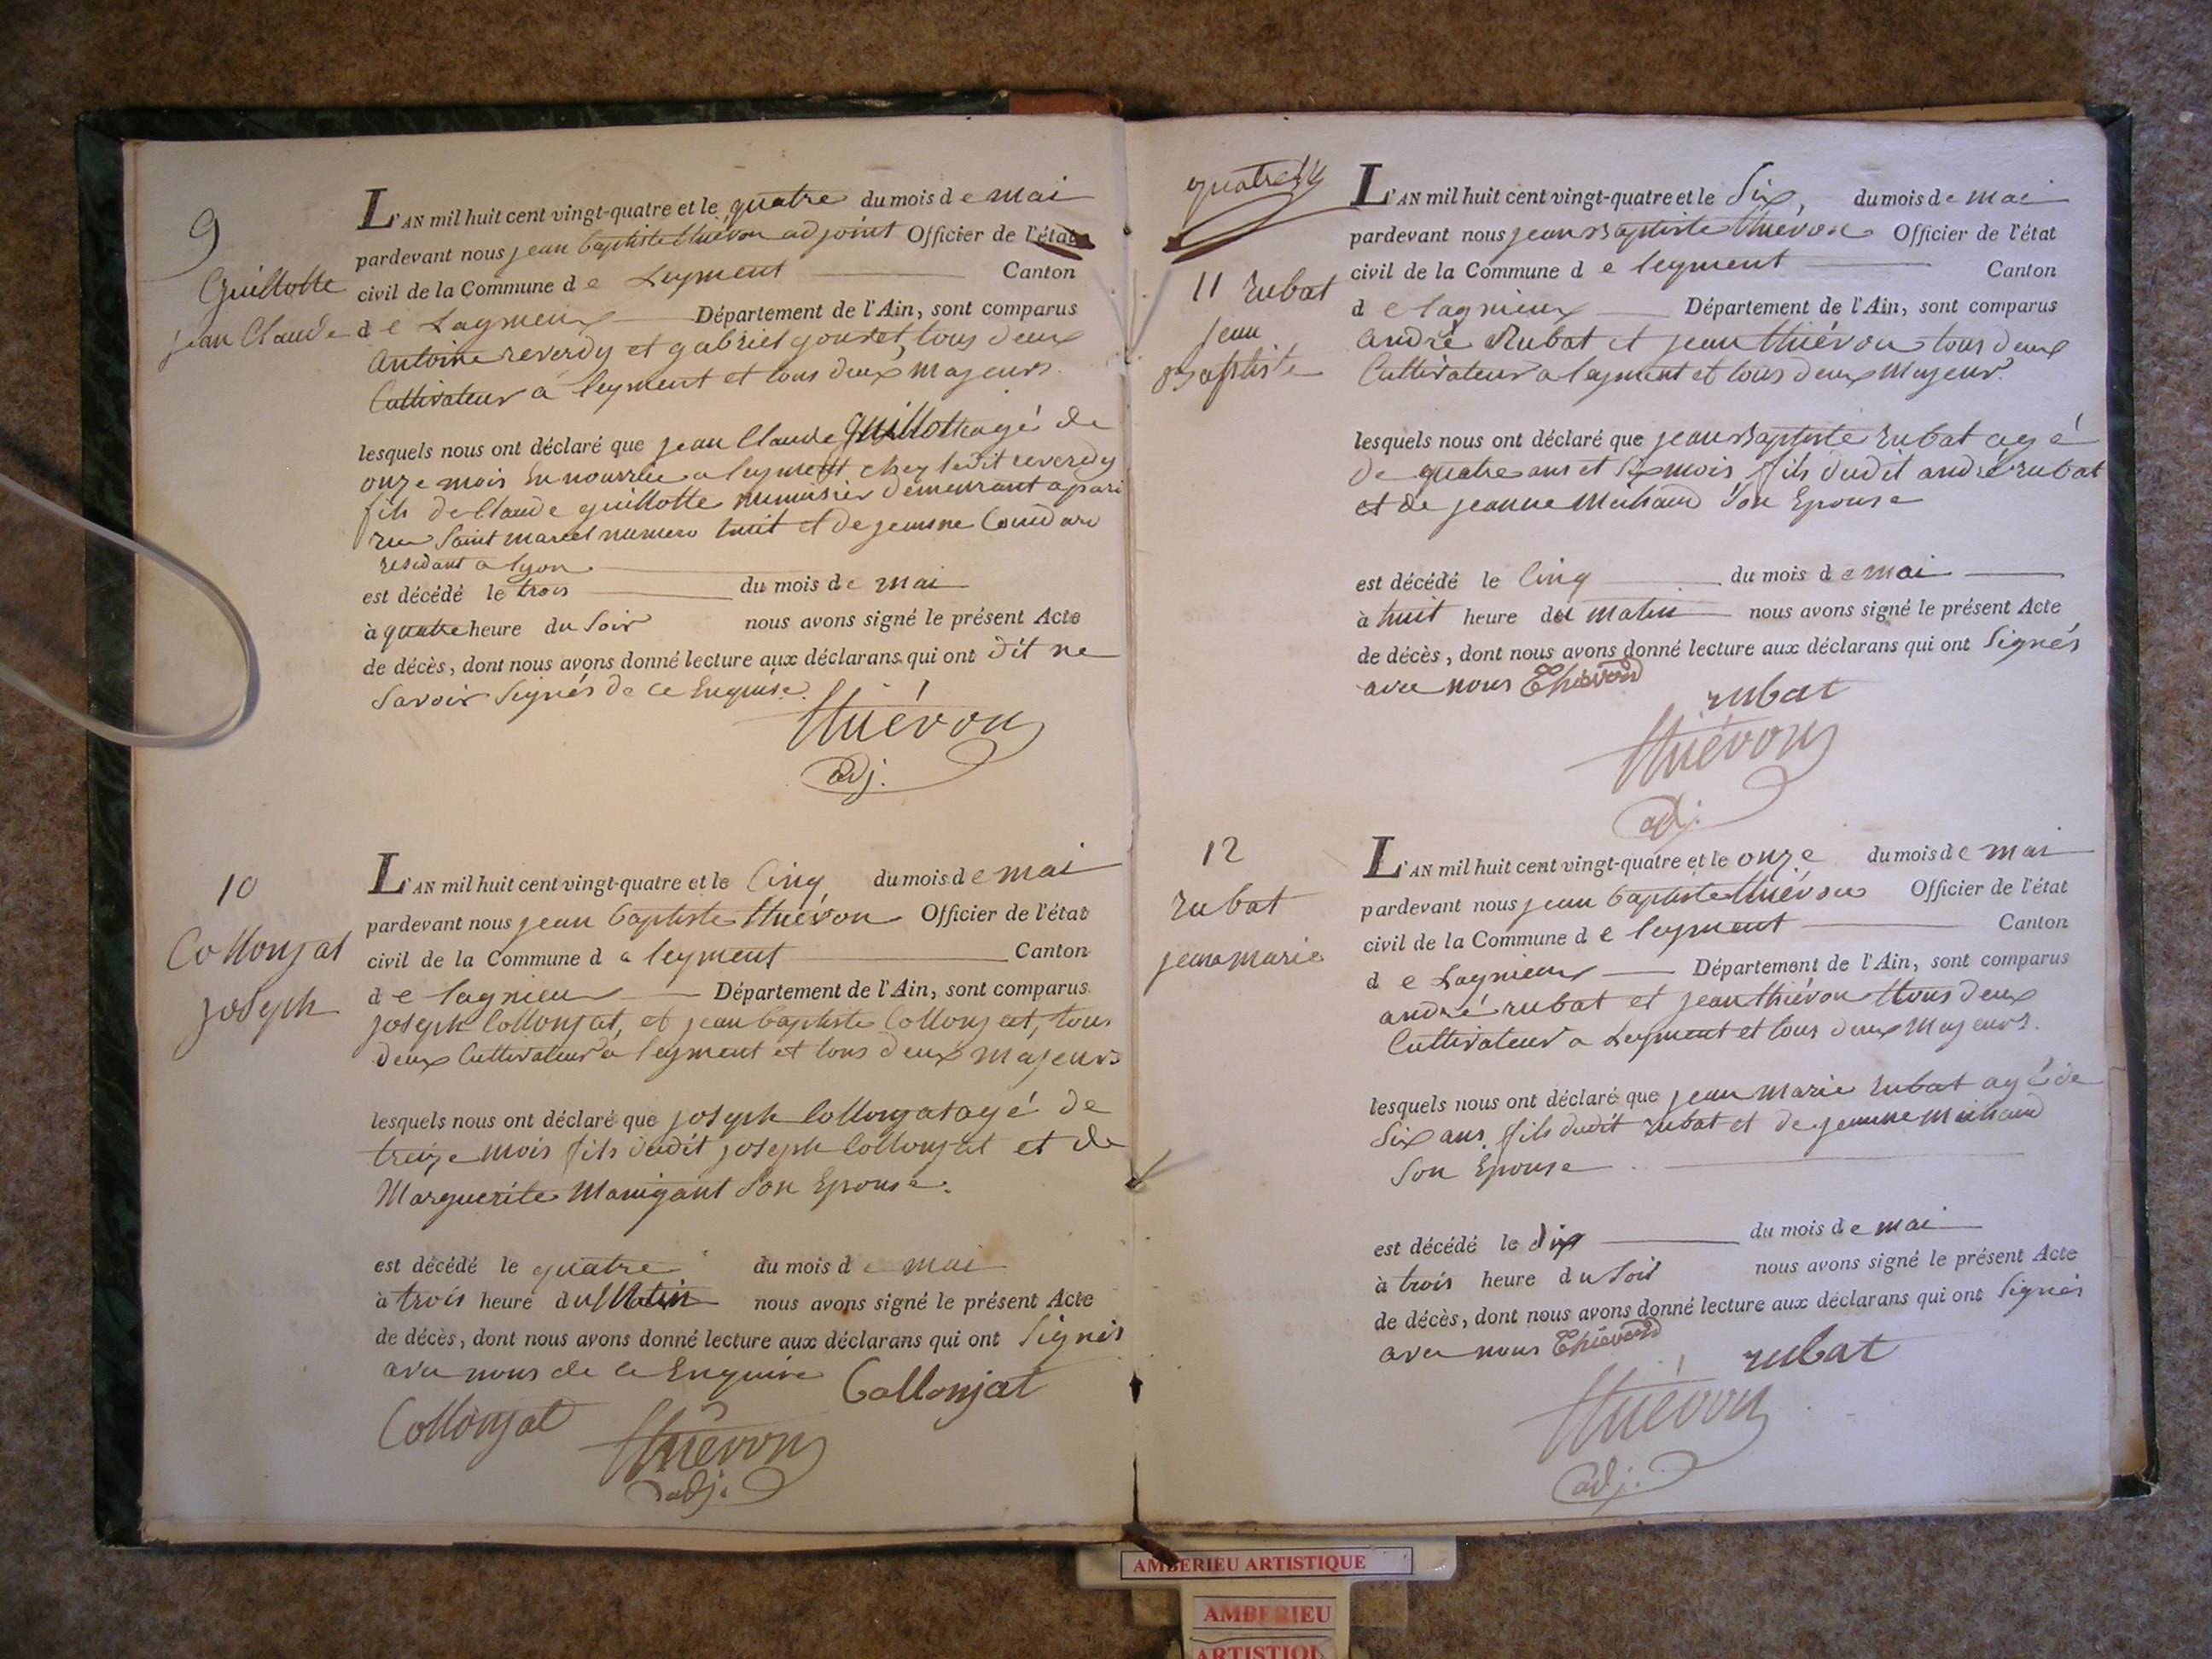 9
Guillotte
jean Claude
L'AN mil huit cent vingt-quatre et le quatre du mois de mai
pardevant nous jean baptiste thiévon adjoint Officier de l'état
civil de la Commune de Leyment Canton
de Lagnieux Département de l'Ain, sont comparus
antoine reverdy et gabriel gouret, tous deux
Cultivateur a leyment et tous deux majeurs
lesquels nous ont déclaré que jean Claude guillotte agé de
onze mois en nourrice a leyment chez ledit reverdy
fils de Claude guillotte menuisier demeurant a pari
rue Saint marcel numero huit et de jeanne
residant a lyon
est décédé le trois du mois de mai
à quatre heure du Soir nous avons signé le présent Acte
de décès, dont nous avons donné lecture aux déclarans qui ont dit ne
Savoir Signés de ce Enquise.
thiévon
adj.
10
Collonjat
joseph
L'AN mil huit cent vingt-quatre et le Cinq du mois de mai
pardevant nous jean baptiste thiévon Officier de l'état
civil de la Commune d a leyment Canton
de lagnieu Département de l'Ain, sont comparus
joseph Collonjat, et jean baptiste Collonjat, tous
deux Cultivateur a leyment et tous deux majeurs
lesquels nous ont déclaré que joseph Collonjat agé de
treize mois fils dudit joseph Collonjat et de
Marguerite Manigant Son Epouse.
est décédé le quatre du mois de mai
à trois heure du Matin nous avons signé le présent Acte
de décès, dont nous avons donné lecture aux déclarans qui ont Signés
avec nous de ce Enquire
Collonjat
Collonjat
thiévon
adj.
quatre
11 rubat
jean
Baptiste
L'AN mil huit cent vingt-quatre et le Six, du mois de mai
pardevant nous jean Baptiste thiévon Officier de l'état
civil de la Commune de leyment Canton
de lagnieux Département de l'Ain, sont comparus
andré Rubat et jean thiévon tous deux
Cultivateur a leyment et tous deux Majeur.
lesquels nous ont déclaré que jean Baptiste rubat agé
de quatre ans et Six mois fils dudit andré rubat
et de jeanne Michaud Son Epouse
est décédé le Cinq du mois de mai
à huit heure du matin nous avons signé le présent Acte
de décès, dont nous avons donné lecture aux déclarans qui ont Signés
avec nous Thiévond
rubat
thiévon
adj.
12
rubat
jean marie
L'AN mil huit cent vingt-quatre et le onze du mois de mai
pardevant nous jean baptiste thiévon Officier de l'état
civil de la Commune de leyment Canton
de Lagnieux Département de l'Ain, sont comparus
andré rubat et jean thiévon tous deux
Cultivateur a Leyment et tous deux Majeurs.
lesquels nous ont déclaré que jean marie rubat agé de
Six ans fils dudit rubat et de jeanne michaud
Son Epouse
est décédé le dix du mois de mai
à trois heure du Soir nous avons signé le présent Acte
de décès, dont nous avons donné lecture aux déclarans qui ont Signés
avec nous Thiévond
rubat
thiévon
adj.
AMBERIEU ARTISTIQUE
AMBERIEU
ARTISTIQU